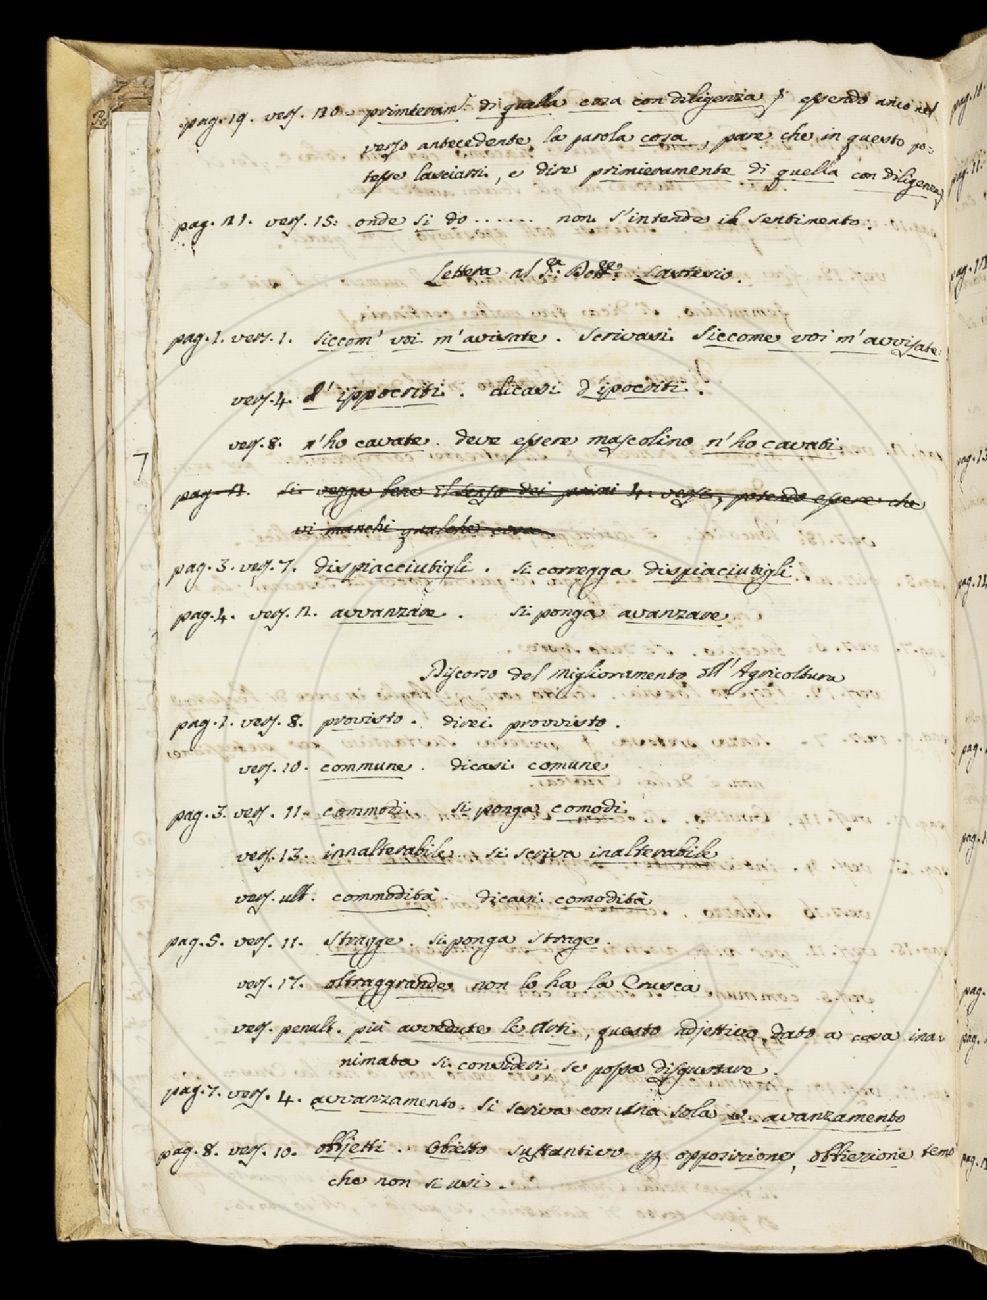 pag. 19. vers. 20. primieram.e di quella cosa con diligenza; essendo anco nel
verso antecedente la parola cosa, pare che in questo po=
tesse lasciarsi, e dire primieramente di quella con diligenza;
pag. 21. vers. 15: onde si do ....... non s'intende il sentimento.
Lettera al S.r Dott.re Lavterio.
pag. 1. vers. 1. siccom' voi m'avisate. scrivasi siccome voi m'avvisate.
vers. 4. d'ippocriti. dicasi d'ipocriti.
vers. 8. n'ho cavate. deve essere mascolino n'ho cavati.
7
pag. 2. si vegga bene il senso dei primi 4. versi, potendo essere che
vi manchi qualche cosa.
pag. 3. vers. 7. dispiacciutigli. si corregga dispiaciutigli
pag. 4. vers. 2. avvanzare. si ponga avanzare
Discorso del miglioramento dell'Agricoltura
pag. 1. vers. 8. provisto. direi provvisto.
vers. 10. commune. dicasi comune
pag. 3. vers. 11. commodi. si ponga comodi
vers. 13. innalterabile. si scriva inalterabile
vers. ult. commodità. dicasi comodità
pag. 5. vers. 11. stragge. si ponga strage.
vers. 17. oltraggrande non lo ha la Crusca
vers. penult. più avvedute le Arti, questo adjettivo dato a cosa ina=
nimata si consideri se possa disgustare.
pag. 7. vers. 4. avvanzamento. si scriva con una sola v. avanzamento
pag. 8. vers. 10. obbjetti. Obietto sustantivo p opposizione, obbiezione temo
che non si usi.